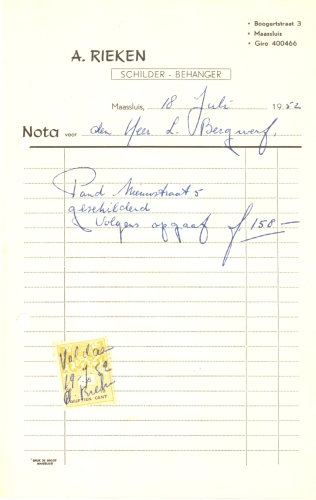 • Boogertstraat 3
• Maassluis
• Giro 400466
A. RIEKEN
SCHILDER - BEHANGER
Maassluis, 18 Juli 1952
Nota voor den Heer L. Bergwerf,
Pand Nieuwstraat 5
geschilderd
Volgens opgaaf f 158 —
Voldaan
19 7 52
A. Rieken
CENT